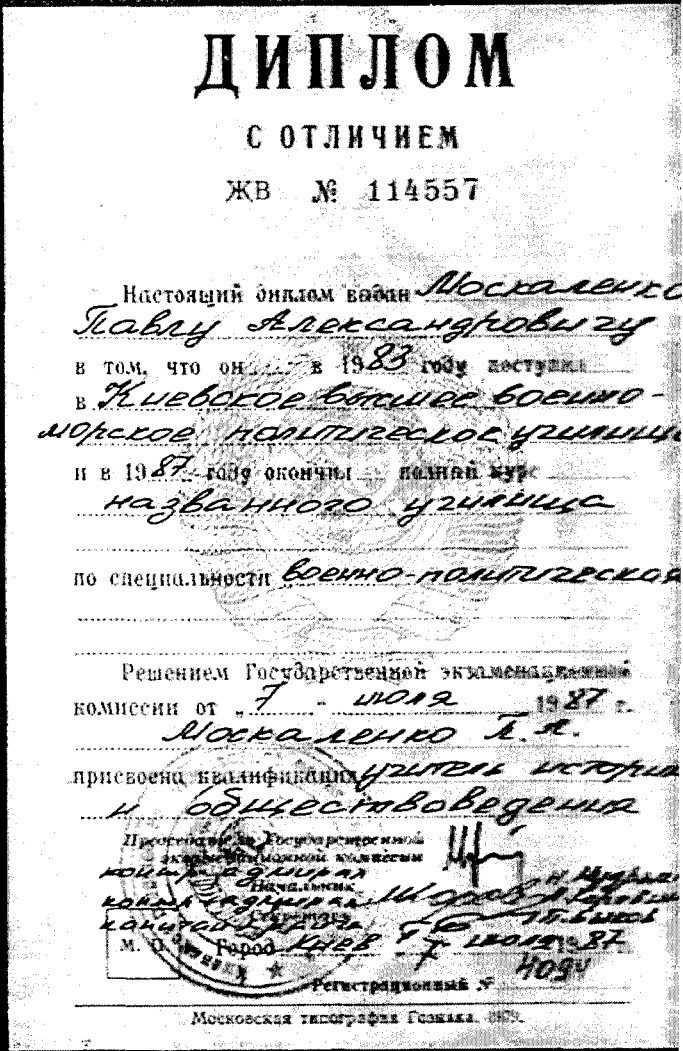 ДИПЛОМ
С ОТЛИЧИЕМ
ЖВ № 114557
Настоящий диплом выдан Москаленко
Павлу Александровичу
в том, что он в 1983 году поступил
в Киевское высшее военно-
морское политическое училище
и в 1987 году окончил полный курс
названного училища
по специальности военно-политическая
Решением Государственной экзаменационной
комиссии от „7" июля 1987 г.
Москаленко П. А.
присвоена квалификация учитель истории
и обществоведения
Председатель Государственной
экзаменационной комиссии
контр-адмирал
Начальник
контр-адмирал
Секретарь
капитан
М. П. Город Киев 7 июля 1987
Регистрационный № 4094
Московская типография Гознака. 1979.